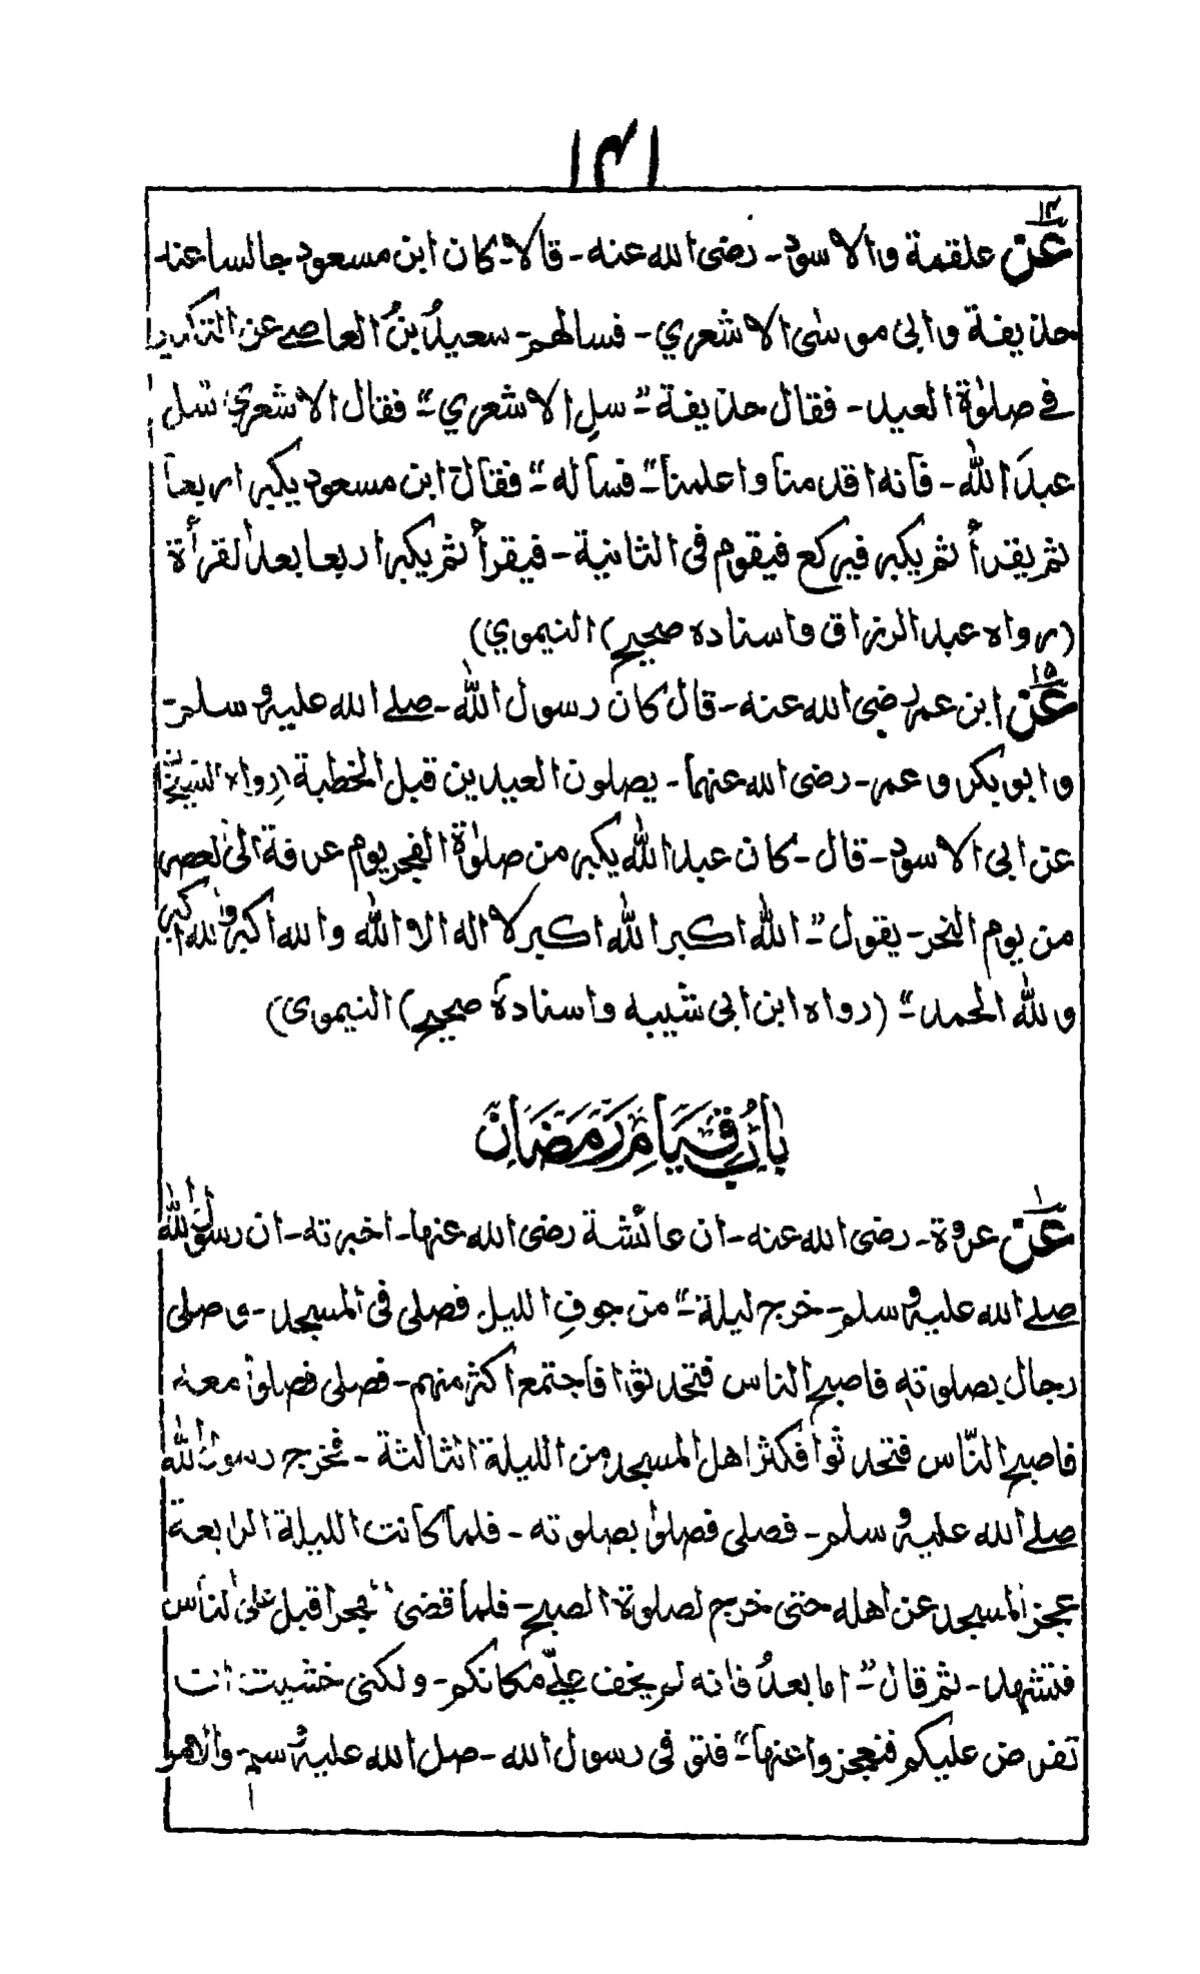 ١٣١
١٤
عن علقمة والاسود - رضى الله عنه - قالا - كان ابن مسعود جالسا عنه
حذيفة وابى موسٰى الاشعري - فسالهم - سعيدُ بنُ العاصے عن التكبير
فى صلوٰة العيد - فقال حذيفة -" سلِ الاشعري"- فقال الاشعريُ سل
عبدَ الله - فانه اقدمنا واعلمنا"- فساله -" فقال ابن مسعود يكبر اربعا
ثم يقرأ ثم يكبر فيركع فيقوم فى الثانية - فيقرأ ثم يكبر اربعا بعد القرأة
(رواه عبد الرزاق واسناده صحيح) النيموي)
١٥
عن ابن عمر رضى الله عنه - قال كان رسول الله - صلے الله عليه و سلم -
وابو بكر و عمر - رضى الله عنهما - يصلون العيدين قبل الخطبة (رواه الشيخان
عن ابى الاسود - قال - كان عبد الله يكبر من صلوٰة الفجر يوم عرفة الى العصر
من يوم النحر - يقول -" الله اكبر الله اكبر لا اله الا الله والله اكبر والله اكبر
ولله الحمد -" (رواه ابن ابى شيبه واسناده صحيح) النيموى)
بَابُ قِيَامِ رَمَضَانَ
١
عن عروة - رضى الله عنه - ان عائشة رضى الله عنها - اخبرته - ان رسول الله
صلے الله عليه و سلم - خرج ليلة -" من جوفِ الليل فصلى فى المسجد - و صلى
رجال بصلوته فاصبح الناس فتحدثوا فاجتمع اكثر منهم - فصلى فصلوا معه
فاصبح النّاس فتحدثوا فكثر اهل المسجد من الليلة الثالثة - فخرج رسول الله
صلے الله عليه و سلم - فصلى فصلوا بصلوته - فلما كانت الليلة الرابعة
عجز المسجد عن اهله حتى خرج لصلوة الصبح - فلما قضى الفجر اقبل على الناس
فتشهد - ثم قال -" اما بعدُ فانه لم يخف عليّ مكانكم - ولكنى خشيت ان
تفرض عليكم فتعجزوا عنها"- فتوفى رسول الله - صلى الله عليه و سلم - والامر